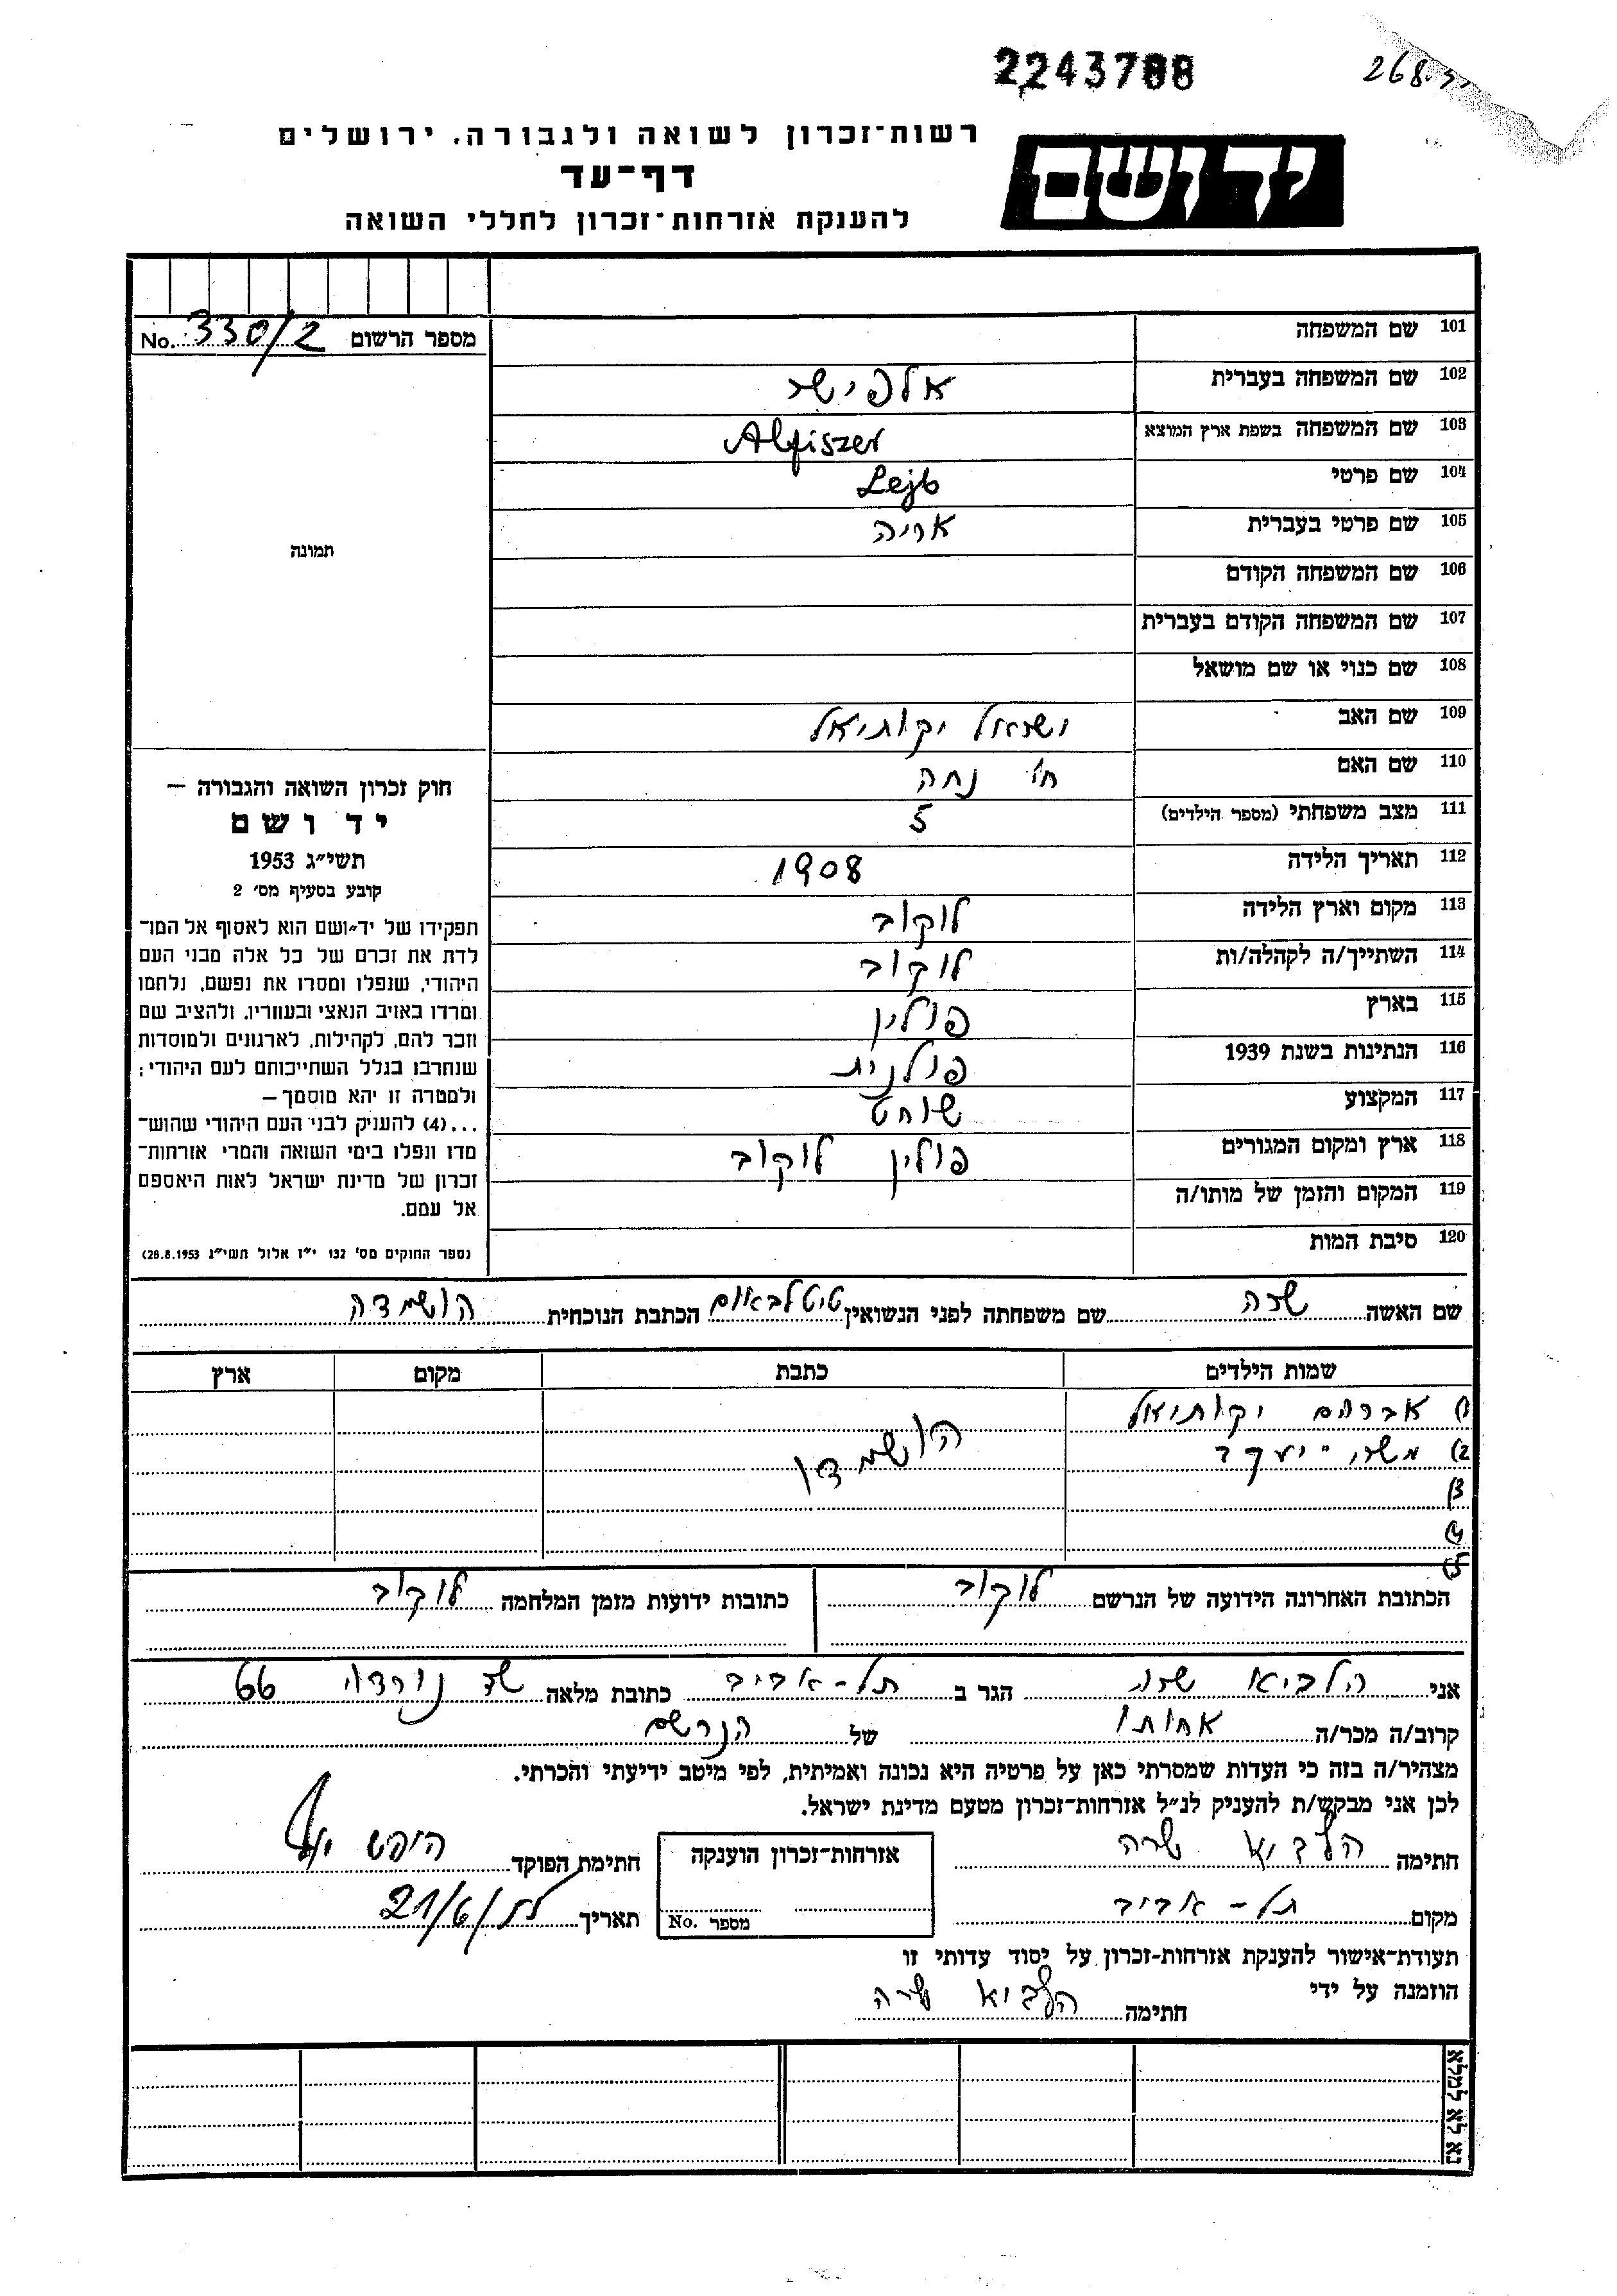 2243788
268
רשות־זכרון לשואה ולגבורה, ירושלים
דף־עד
להענקת אזרחות־זכרון לחללי השואה
יד ושם
מספר הרשום No. 330/2
תמונה
101 שם המשפחה
102 שם המשפחה בעברית אלפישר
103 שם המשפחה בשפת ארץ המוצא Alfiszer
104 שם פרטי Lejb
105 שם פרטי בעברית אריה
106 שם המשפחה הקודם
107 שם המשפחה הקודם בעברית
108 שם כנוי או שם מושאל
109 שם האב ישראל יקותיאל
110 שם האם נחה
111 מצב משפחתי (מספר הילדים) 5
112 תאריך הלידה 1908
113 מקום וארץ הלידה לוקוב
114 השתייך/ה לקהלה/ות לוקוב
115 בארץ פולין
116 הנתינות בשנת 1939 פולנית
117 המקצוע שוחט
118 ארץ ומקום המגורים פולין לוקוב
119 המקום והזמן של מותו/ה
120 סיבת המות
חוק זכרון השואה והגבורה —
יד ושם
תשי״ג 1953
קובע בסעיף מס׳ 2
תפקידו של יד־ושם הוא לאסוף אל המו־
לדת את זכרם של כל אלה מבני העם
היהודי, שנפלו ומסרו את נפשם, נלחמו
ומרדו באויב הנאצי ובעוזריו, ולהציב שם
וזכר להם, לקהילות, לארגונים ולמוסדות
שנחרבו בגלל השתייכותם לעם היהודי;
ולמטרה זו יהא מוסמך —
...(4) להעניק לבני העם היהודי שהוש־
מדו ונפלו בימי השואה והמרי אזרחות־
זכרון של מדינת ישראל לאות היאספם
אל עמם.
(ספר החוקים מס׳ 132 י״ז אלול תשי״ג 28.8.1953)
שם האשה שרה שם משפחתה לפני הנשואין טיטלבאום הכתבת הנוכחית הושמדה
שמות הילדים כתבת מקום ארץ
1) אברהם יקותיאל
2) משה־יעקב הושמדו
3)
4)
5)
הכתובת האחרונה הידועה של הנרשם לוקוב
כתובות ידועות מזמן המלחמה לוקוב
אני הלביא שרה הגר ב תל־אביב כתובת מלאה שד נורדה 66
קרוב/ה מכר/ה אחותו של הנרשם
מצהיר/ה בזה כי העדות שמסרתי כאן על פרטיה היא נכונה ואמיתית, לפי מיטב ידיעתי והכרתי.
לכן אני מבקש/ת להעניק לנ״ל אזרחות־זכרון מטעם מדינת ישראל.
חתימה הלביא שרה
אזרחות־זכרון הוענקה
מספר No.
חתימת הפוקד
מקום תל־אביב
תאריך 21/6/
תעודת־אישור להענקת אזרחות־זכרון על יסוד עדותי זו
הוזמנה על ידי
חתימה הלביא שרה
נא לא למלא